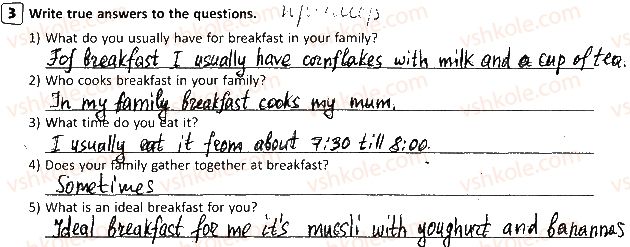 3 Write true answers to the questions.
1) What do you usually have for breakfast in your family?
Fof breakfast I usually have cornflakes with milk and a cup of tea.
2) Who cooks breakfast in your family?
In my family breakfast cooks my mum.
3) What time do you eat it?
I usually eat it from about 7:30 till 8:00.
4) Does your family gather together at breakfast?
Sometimes
5) What is an ideal breakfast for you?
Ideal breakfast for me it's mussli with youghurt and banannas